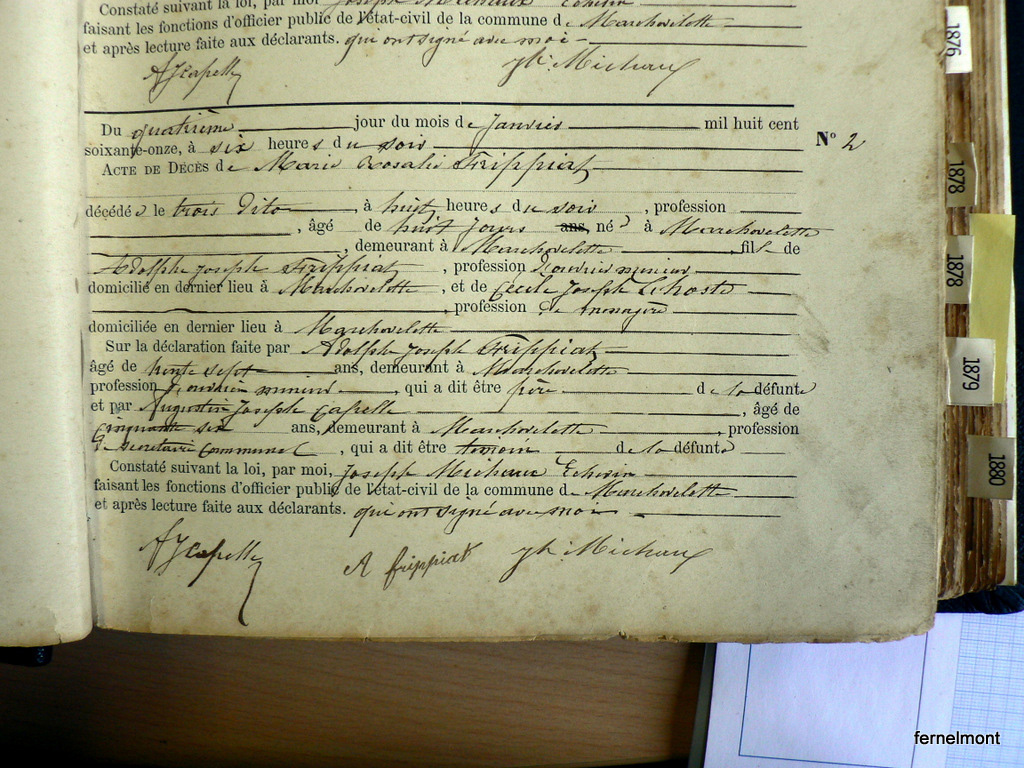 Constaté suivant la loi, par moi Joseph Michaux Echevin
faisant les fonctions d'officier public de l'état-civil de la commune de Marchovelette
et après lecture faite aux déclarants. qui ont signé avec moi
AJCapelle Jh. Michaux
Du quatrième jour du mois de Janvier mil huit cent
soixante-onze, à six heures du soir
N° 2
ACTE DE DÉCÈS de Marie Rosalie Frippiat
décédée le trois dito, à huit heures du soir, profession
, âgé de huit jours ans, née à Marchovelette
, demeurant à Marchovelette, fille de
Adolphe Joseph Frippiat, profession d'ouvrier mineur
domicilié en dernier lieu à Marchovelette, et de Cécile Joseph Lhoste
, profession de ménagère
domiciliée en dernier lieu à Marchovelette
Sur la déclaration faite par Adolphe Joseph Frippiat
âgé de trente sept ans, demeurant à Marchovelette
profession d'ouvrier mineur, qui a dit être père de la défunte
et par Augustin Joseph Capelle, âgé de
cinquante six ans, demeurant à Marchovelette, profession
de secrétaire communal, qui a dit être témoin de la défunte
Constaté suivant la loi, par moi, Joseph Michaux Echevin
faisant les fonctions d'officier public de l'état-civil de la commune de Marchovelette
et après lecture faite aux déclarants. qui ont signé avec moi
AJCapelle A frippiat Jh. Michaux
1876
1878
1878
1879
1880
fernelmont